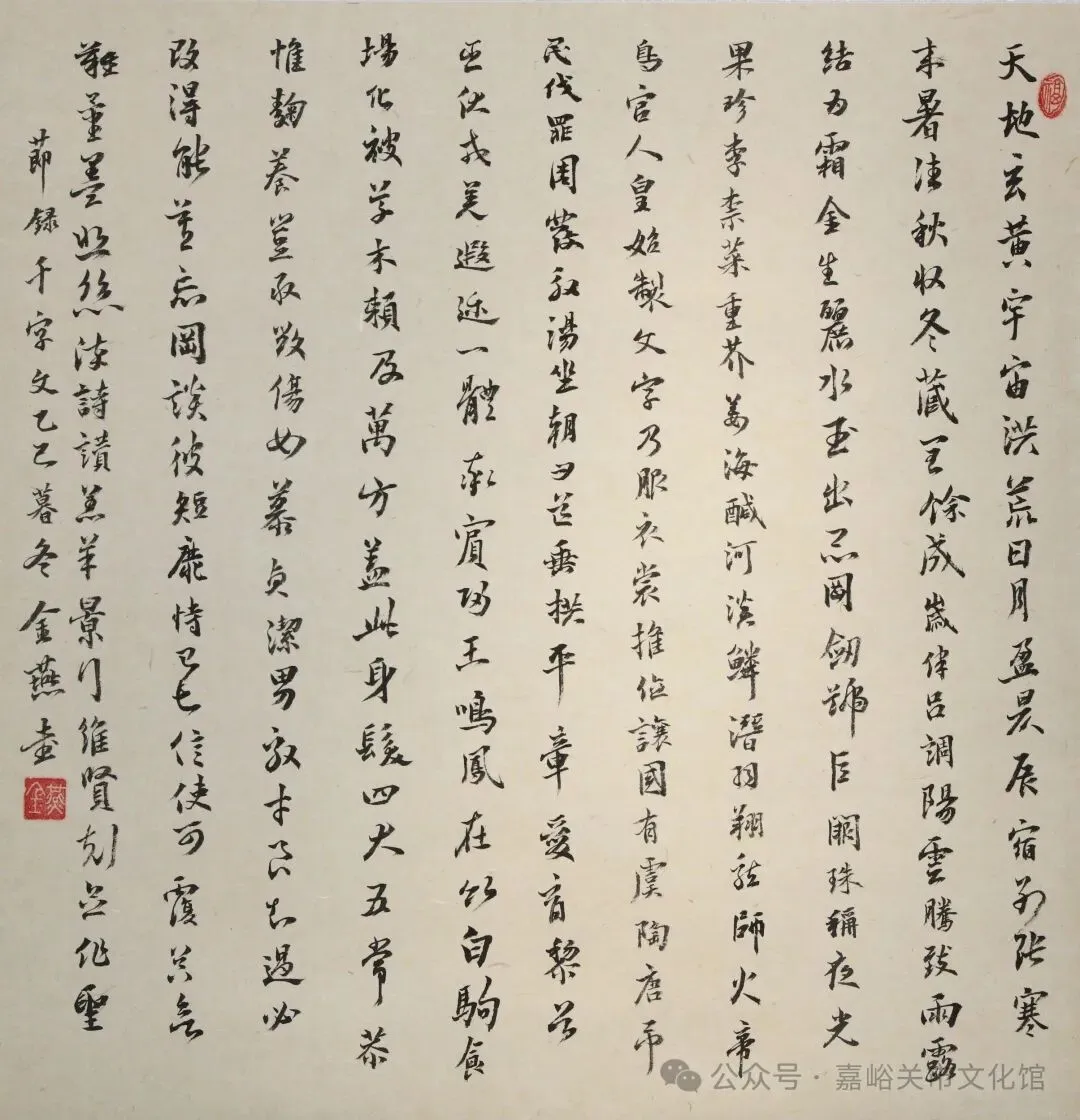 天地玄黃宇宙洪荒日月盈昃辰宿列張寒
来暑往秋收冬藏閏餘成歲律呂調陽雲騰致雨露
結為霜金生麗水玉出崑岡劍號巨闕珠稱夜光
果珍李柰菜重芥薑海鹹河淡鱗潛羽翔龍師火帝
鳥官人皇始製文字乃服衣裳推位讓國有虞陶唐弔
民伐罪周發殷湯坐朝問道垂拱平章愛育黎首
臣伏戎羌遐邇一體率賓歸王鳴鳳在竹白駒食
場化被草木賴及萬方蓋此身髮四大五常恭
惟鞠養豈敢毀傷女慕貞潔男效才良知過必
改得能莫忘罔談彼短靡恃己長信使可覆器欲
難量墨悲絲染詩讚羔羊景行維賢克念作聖
節録千字文乙巳暮冬金燕書
燕金
公众号·嘉峪关市文化馆